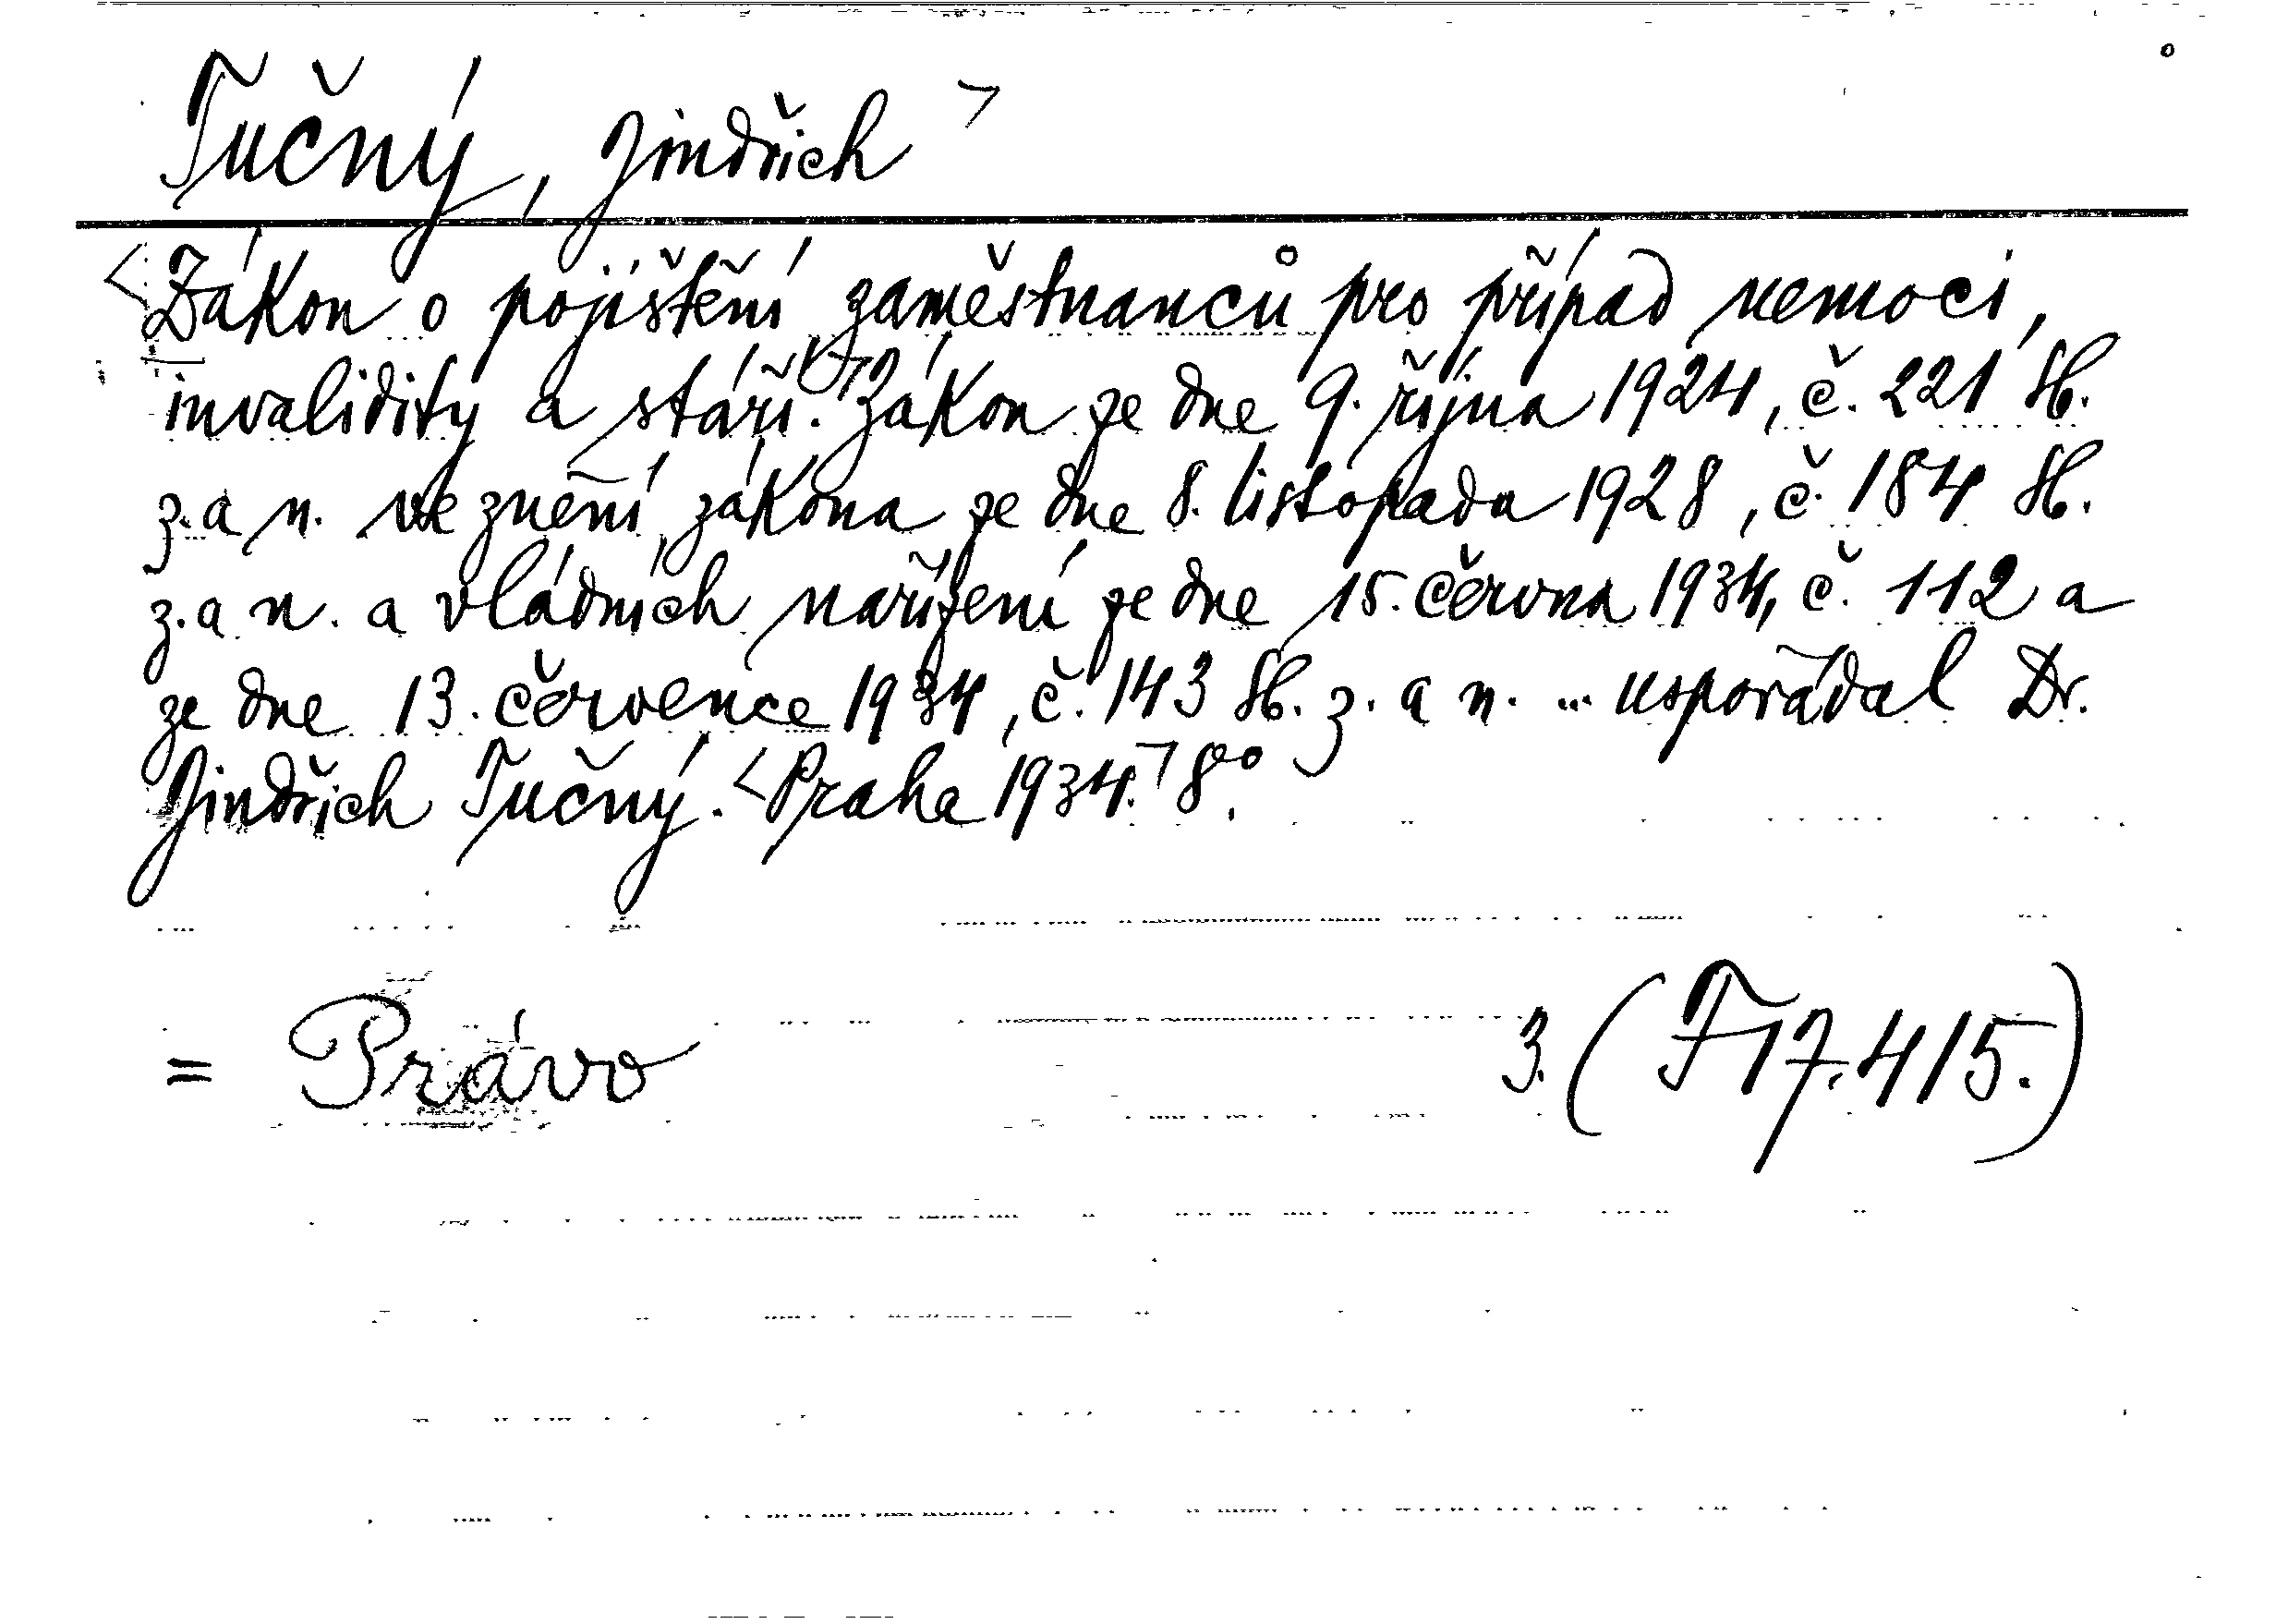 Tučný, Jindřich
Zákon o pojištění zaměstnanců pro případ nemoci,
invalidity a stáří. Zákon ze dne 9. října 1924, č. 221 Sb.
z. a n. ve znění zákona ze dne 8. listopadu 1928, č. 184 Sb.
z. a n. a vládních nařízení ze dne 15. června 1934, č. 112 a
ze dne 13. července 1934, č. 143 Sb. z. a n. ... uspořádal Dr.
Jindřich Tučný. Praha 1934. 8°.
= Právo 3. (F 17.415.)